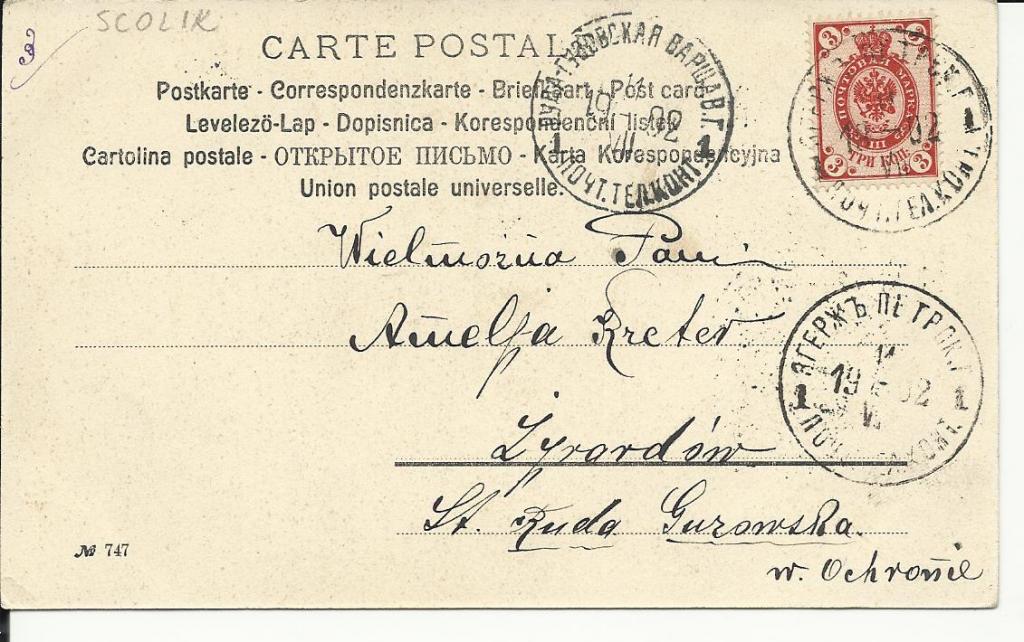 SCOLIK
CARTE POSTALE
Postkarte - Correspondenzkarte - Briefkaart - Post card
Levelező-Lap - Dopisnica - Korespondenční lístek
Cartolina postale - ОТКРЫТОЕ ПИСЬМО - Karta Korespondencyjna
Union postale universelle.
РУДА-ГУЗОВСКАЯ ВАРШАВ.Г.
19 02
VII
1 1
ПОЧТ.ТЕЛ.КОНТ.
3 3
ПОЧТОВАЯ МАРКА
ТРИ КОП.
3 3
02
1
ПОЧТ.ТЕЛ.КОНТ.
Wielmożna Pani
Amelja Kreter
Żyrardów
St. Ruda Guzowska.
w. Ochronie
ЗГЕРЖЪ ПЕТРОК.Г.
19 02
1 1
ПОЧТ.ТЕЛ.КОНТ.
№ 747